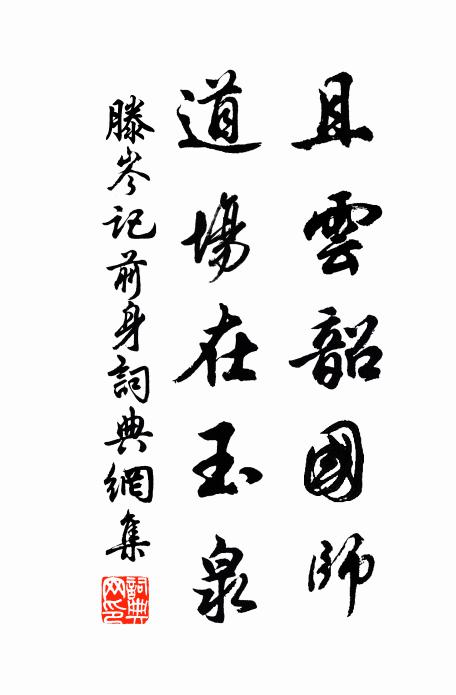 且雲韶國師
道場在玉泉
滕岑記前身詞典網集
詞典網印